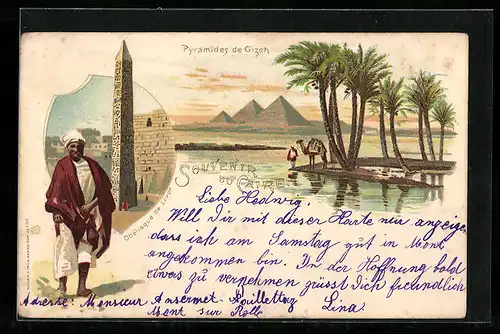 Pyramides de Gizeh
Obélisque de Luxor
SOUVENIR
DU CAIRE
Liebe Hedwig!
Will Dir mit dieser Karte nur anzeigen
dass ich am Samstag gut in Mont
angekommen bin. In der Hoffnung bald
etwas zu vernehmen grüsst Dich freundlich
Adresse: Monsieur Ansermet-
Lina
Mont sur Rolle